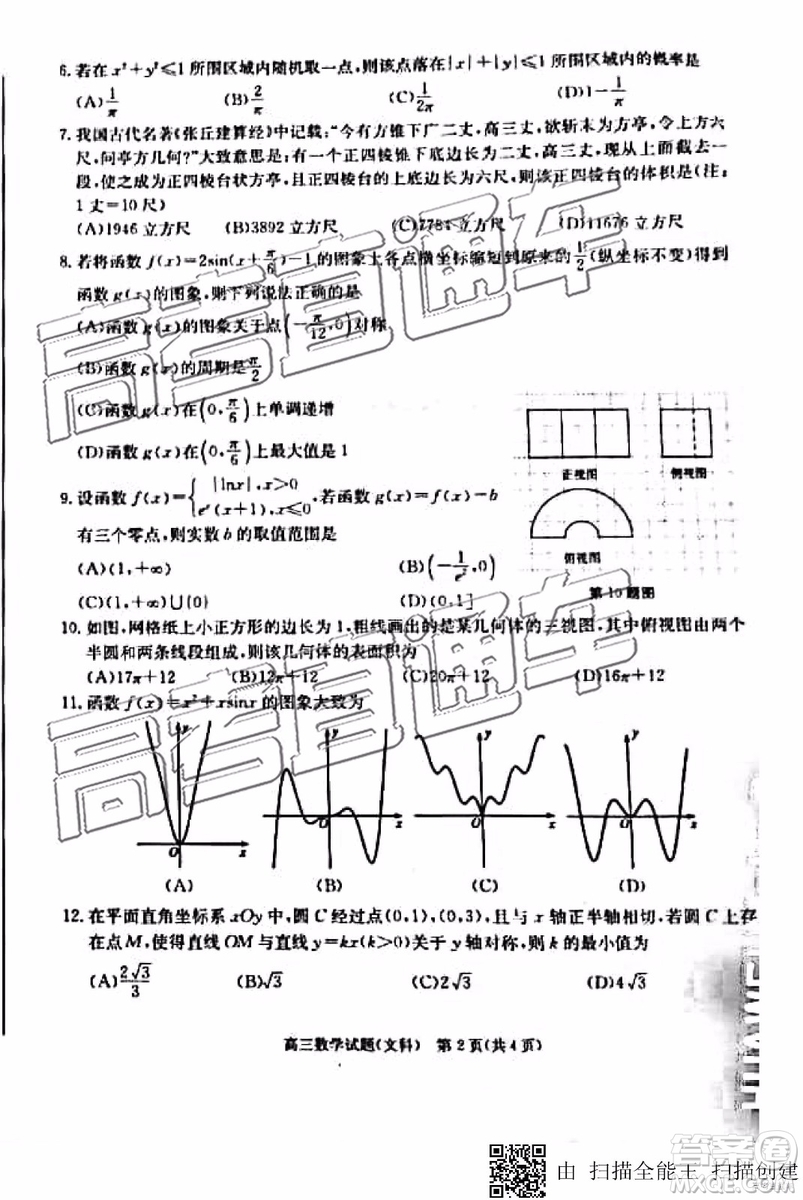 6. 若在 x²+y²≤1 所围区域内随机取一点,则该点落在|x|+|y|≤1 所围区域内的概率是
(A)1/π (B)2/π (C)1/2π (D)1-1/π
7. 我国古代名著《张丘建算经》中记载:“今有方锥下广二丈,高三丈,欲斩末为方亭,令上方六
尺,问亭方几何?”大致意思是:有一个正四棱锥下底边长为二丈,高三丈,现从上面截去一
段,使之成为正四棱台状方亭,且正四棱台的上底边长为六尺,则该正四棱台的体积是(注:
1丈=10尺)
(A)1946立方尺 (B)3892立方尺 (C)7784立方尺 (D)11676立方尺
8. 若将函数 f(x)=2sin(x+π/6)-1 的图象上各点横坐标缩短到原来的1/2(纵坐标不变)得到
函数g(x)的图象,则下列说法正确的是
(A)函数g(x)的图象关于点(-π/12,0)对称
(B)函数g(x)的周期是π/2
(C)函数g(x)在(0,π/6)上单调递增
(D)函数g(x)在(0,π/6)上最大值是1
正视图 侧视图
俯视图
第10题图
9. 设函数 f(x)={|lnx|,x>0
eˣ(x+1),x≤0,若函数 g(x)=f(x)-b
有三个零点,则实数b的取值范围是
(A)(1,+∞) (B)(-1/e²,0)
(C)(1,+∞)∪{0} (D)(0,1]
10. 如图,网格纸上小正方形的边长为1,粗线画出的是某几何体的三视图,其中俯视图由两个
半圆和两条线段组成,则该几何体的表面积为
(A)17π+12 (B)12π+12 (C)20π+12 (D)16π+12
11. 函数 f(x)=x²+xsinx 的图象大致为
y y y y
O x O x O x O x
(A) (B) (C) (D)
12. 在平面直角坐标系xOy中,圆C经过点(0,1),(0,3),且与x轴正半轴相切,若圆C上存
在点M,使得直线OM与直线y=kx(k>0)关于y轴对称,则k的最小值为
(A)2√3/3 (B)√3 (C)2√3 (D)4√3
高三数学试题(文科) 第2页(共4页)
高考直通车
高考直通车
答案圈
MXQE.COM
由 扫描全能王 扫描创建